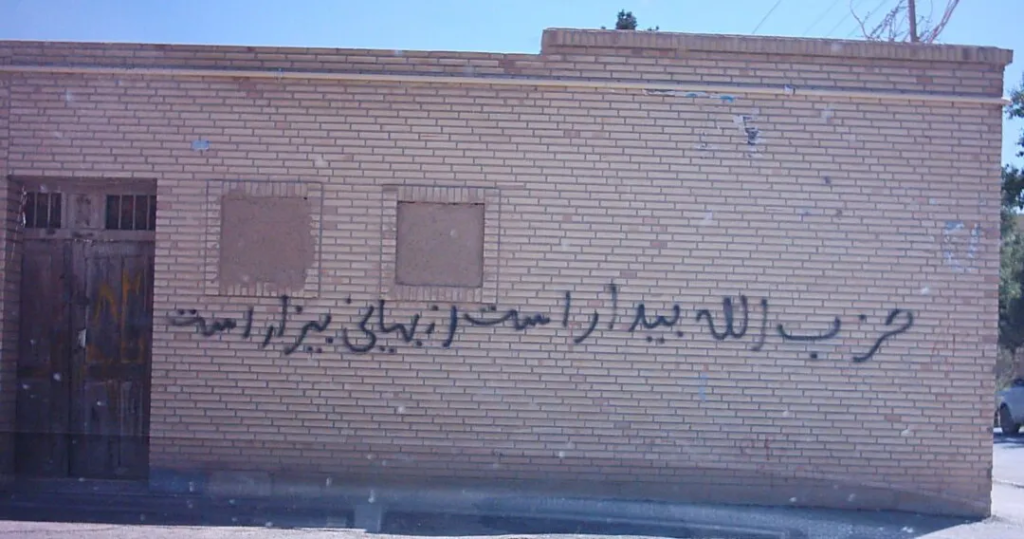 حزب الله بیدار است از بهائی بیزار است